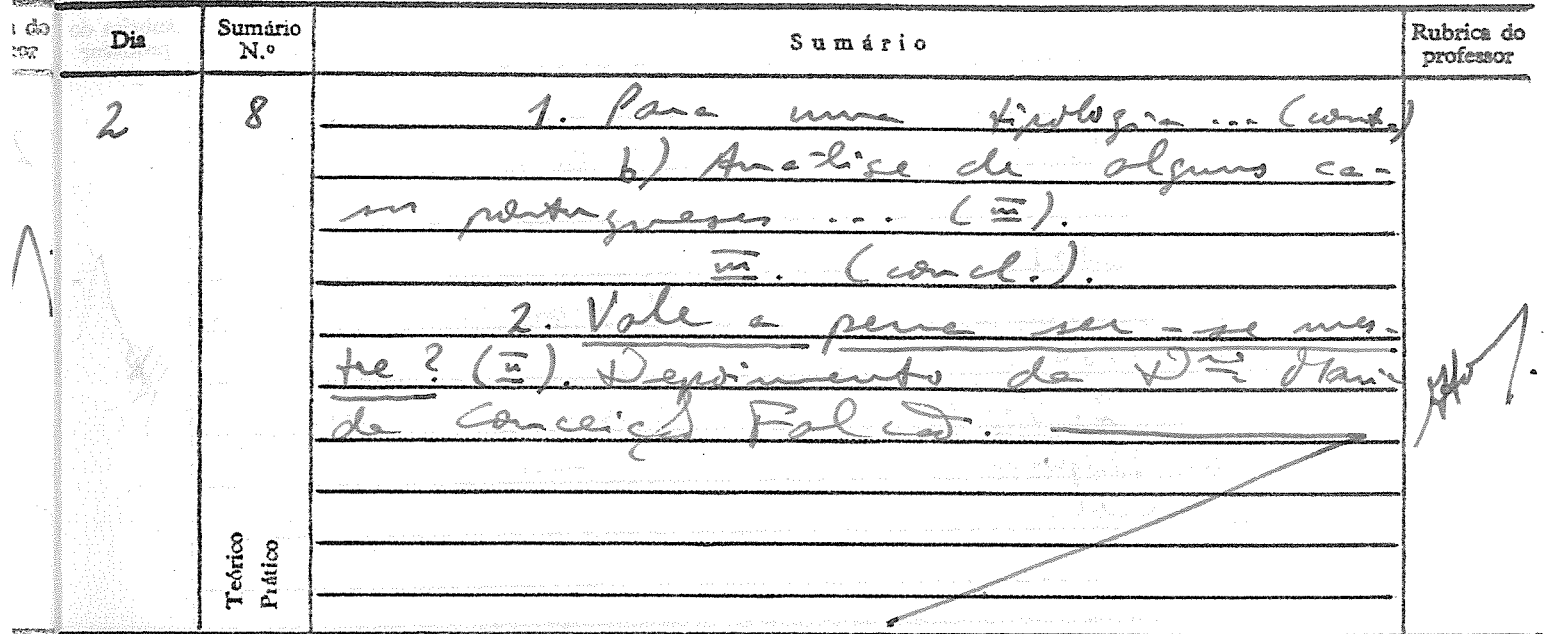 Dia
Sumário N.º
Sumário
Rubrica do professor
2
8
1. Para uma tipologia ... (cont.)
b) Análise de alguns ca-
sos portugueses ... (III).
III. (concl.).
2. Vale a pena ser-se mes-
tre? (II). Depoimento da Drª Maria
da Conceição Falcão.
Teórico
Prático